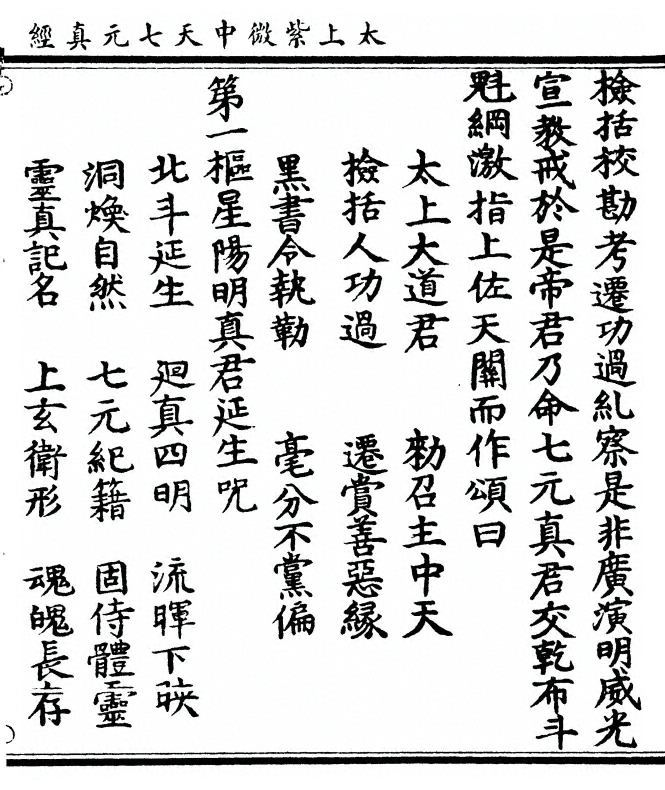 太上紫微中天七元真經
檢括校勘考遷功過糺察是非廣演明威光
宣教戒於是帝君乃命七元真君交乾布斗
魁綱激指上佐天關而作頌曰
太上大道君 勑召主中天
檢括人功過 遷賞善惡緣
黑書令執勒 毫分不黨偏
第一樞星陽明真君延生呪
北斗延生 廻真四明 流暉下映
洞煥自然 七元紀籍 固侍體靈
靈真記名 上玄衛形 魂魄長存